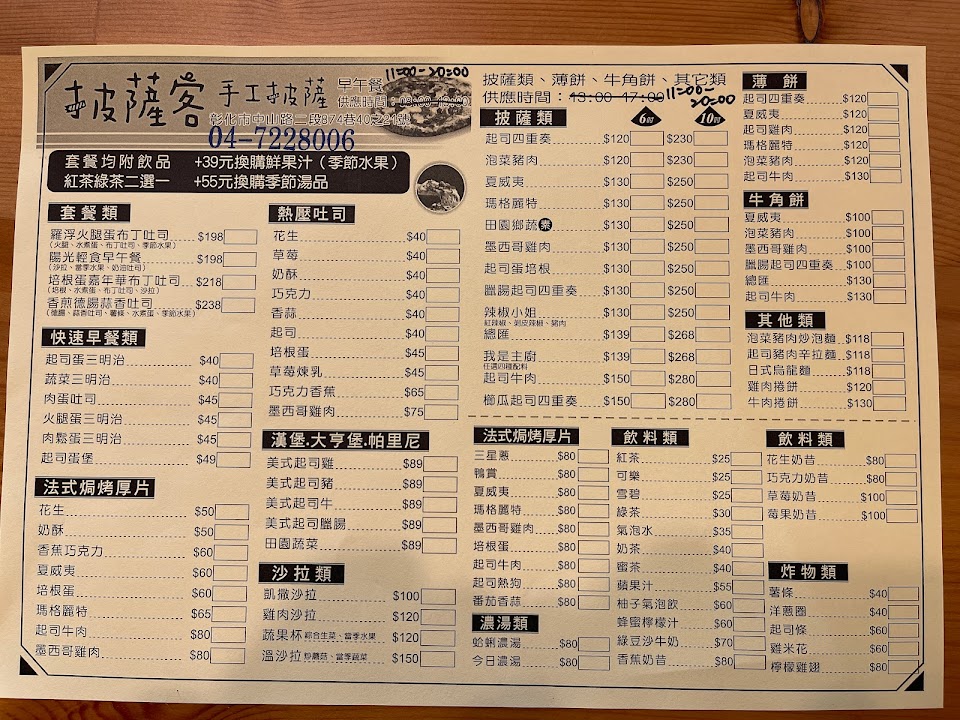 披薩客 手工披薩
早午餐 11:00-20:00
供應時間：
彰化市中山路二段874巷40之21號
04-7228006
套餐均附飲品 +39元換購鮮果汁（季節水果）
紅茶綠茶二選一 +55元換購季節湯品
套餐類
羅浮火腿蛋布丁吐司 $198
（火腿、水煮蛋、布丁吐司、季節水果）
陽光輕食早午餐 $198
（沙拉、當季水果、奶油吐司）
培根蛋嘉年華布丁吐司 $218
（培根、水煮蛋、布丁吐司、沙拉）
香煎德腸蒜香吐司 $238
（德腸、蒜香吐司、薯條、水煮蛋、季節水果）
快速早餐類
起司蛋三明治 $40
蔬菜三明治 $40
肉蛋吐司 $45
火腿蛋三明治 $45
肉鬆蛋三明治 $45
起司蛋堡 $49
法式焗烤厚片
花生 $50
奶酥 $50
香蕉巧克力 $60
夏威夷 $60
培根蛋 $60
瑪格麗特 $65
起司牛肉 $80
墨西哥雞肉 $80
熱壓吐司
花生 $40
草莓 $40
奶酥 $40
巧克力 $40
香蒜 $40
起司 $40
培根蛋 $45
草莓煉乳 $45
巧克力香蕉 $65
墨西哥雞肉 $75
漢堡.大亨堡.帕里尼
美式起司雞 $89
美式起司豬 $89
美式起司牛 $89
美式起司臘腸 $89
田園蔬菜 $89
沙拉類
凱撒沙拉 $100
雞肉沙拉 $120
蔬果杯 綜合生菜、當季水果 $120
溫沙拉 炒蘑菇、當季蔬菜 $150
披薩類、薄餅、牛角餅、其它類
供應時間：13:00-17:00 11:00-20:00
披薩類 6吋 10吋
起司四重奏 $120 $230
泡菜豬肉 $120 $230
夏威夷 $130 $250
瑪格麗特 $130 $250
田園鄉蔬 素 $130 $250
墨西哥雞肉 $130 $250
起司蛋培根 $130 $250
臘腸起司四重奏 $130 $250
辣椒小姐 $130 $250
紅辣椒、剝皮辣椒、豬肉
總匯 $139 $268
我是主廚 $139 $268
任選四種配料
起司牛肉 $150 $280
櫛瓜起司四重奏 $150 $280
薄餅
起司四重奏 $120
夏威夷 $120
起司雞肉 $120
瑪格麗特 $120
泡菜豬肉 $120
起司牛肉 $130
牛角餅
夏威夷 $100
泡菜豬肉 $100
墨西哥雞肉 $100
臘腸起司四重奏 $100
總匯 $130
起司牛肉 $130
其他類
泡菜豬肉炒泡麵 $118
起司豬肉辛拉麵 $118
日式烏龍麵 $118
雞肉捲餅 $120
牛肉捲餅 $130
法式焗烤厚片
三星蔥 $80
鴨賞 $80
夏威夷 $80
瑪格麗特 $80
墨西哥雞肉 $80
培根蛋 $80
起司牛肉 $80
起司熱狗 $80
番茄香蒜 $80
濃湯類
蛤蜊濃湯 $80
今日濃湯 $80
飲料類
紅茶 $25
可樂 $25
雪碧 $25
綠茶 $30
氣泡水 $35
奶茶 $40
蜜茶 $40
蘋果汁 $55
柚子氣泡飲 $60
蜂蜜檸檬汁 $60
綠豆沙牛奶 $70
香蕉奶昔 $80
飲料類
花生奶昔 $80
巧克力奶昔 $80
草莓奶昔 $100
莓果奶昔 $100
炸物類
薯條 $40
洋蔥圈 $40
起司條 $60
雞米花 $60
檸檬雞翅 $80